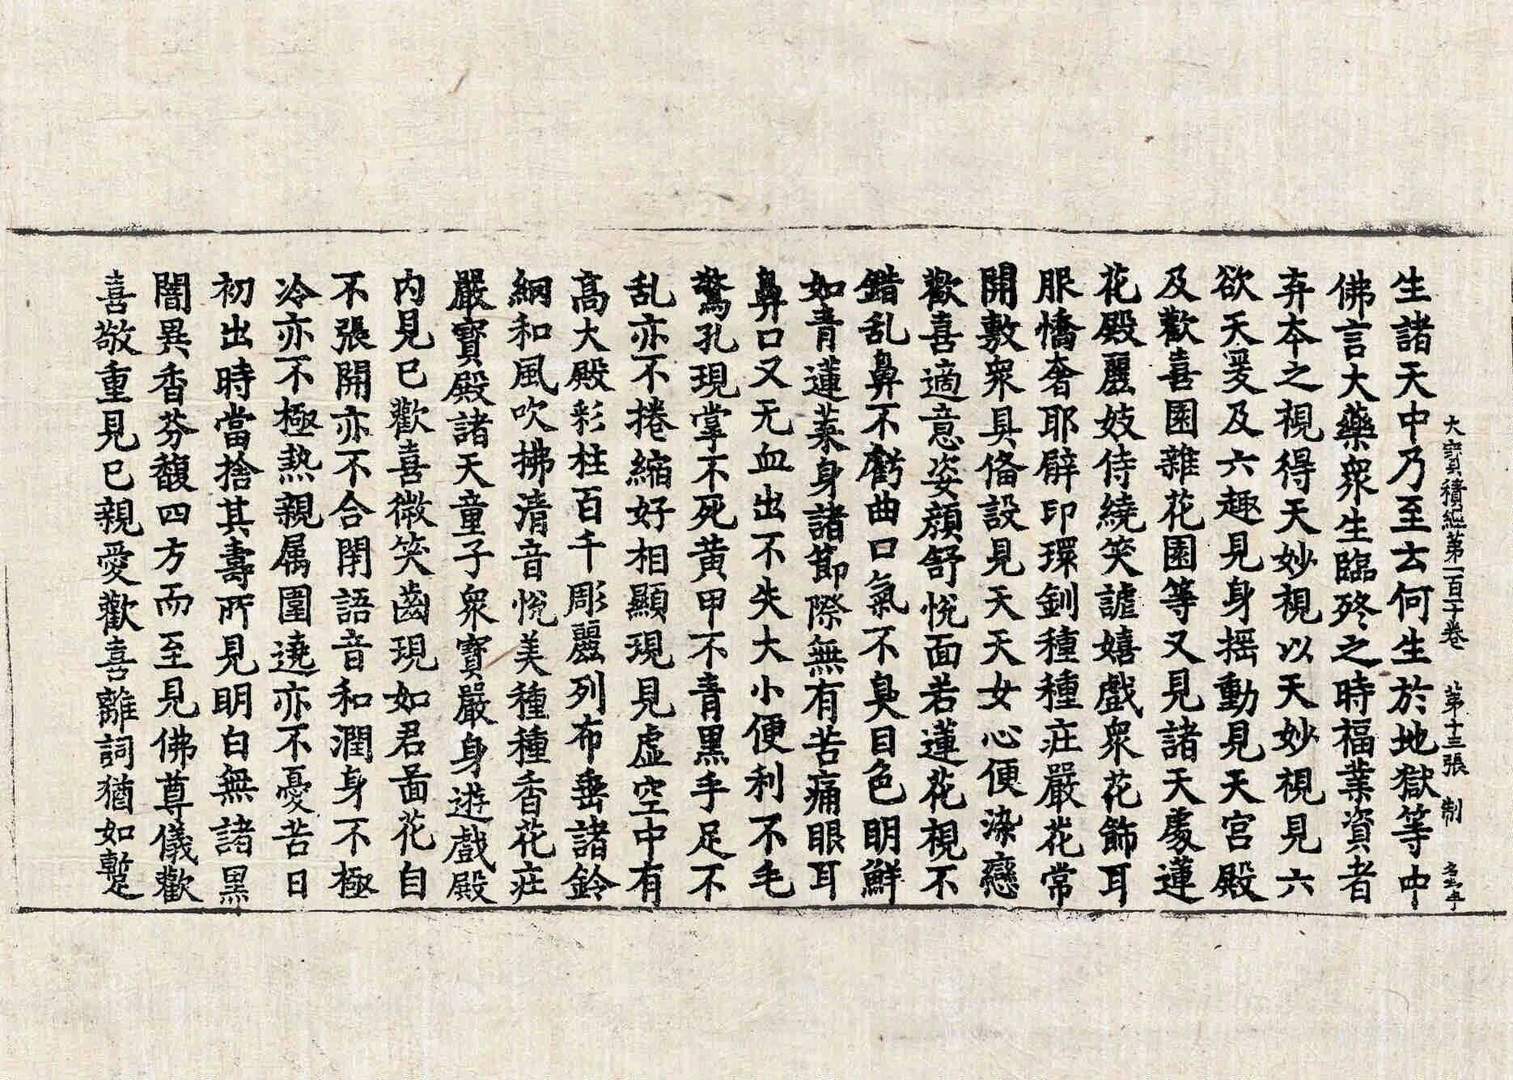 大寶積經第一百十卷 第十三張 制
生諸天中乃至云何生於地獄等中
佛言大藥衆生臨終之時福業資者
弃本之視得天妙視以天妙視見六
欲天爰及六趣見身摇動見天宮殿
及歡喜園雜花園等又見諸天處蓮
花殿麗妓侍繞笑謔嬉戲衆花飾耳
服憍奢耶臂印環釧種種庄嚴花常
開敷衆具俻設見天天女心便染戀
歡喜適意姿顔舒悅面若蓮花視不
錯乱鼻不虧曲口氣不臭目色明鮮
如青蓮葉身諸節際無有苦痛眼耳
鼻口又无血出不失大小便利不毛
驚孔現掌不死黄甲不青黒手足不
乱亦不捲縮好相顯現見虛空中有
高大殿彩柱百千彫麗列布垂諸鈴
網和風吹拂清音悅美種種香花庄
嚴寶殿諸天童子衆寶嚴身遊戲殿
内見已歡喜微笑齒現如君圖花目
不張開亦不合閇語音和潤身不極
冷亦不極熱親属圍遶亦不憂苦日
初出時當捨其壽所見明白無諸黒
闇異香芬馥四方而至見佛尊儀歡
喜敬重見已親愛歡喜離詞猶如蹔